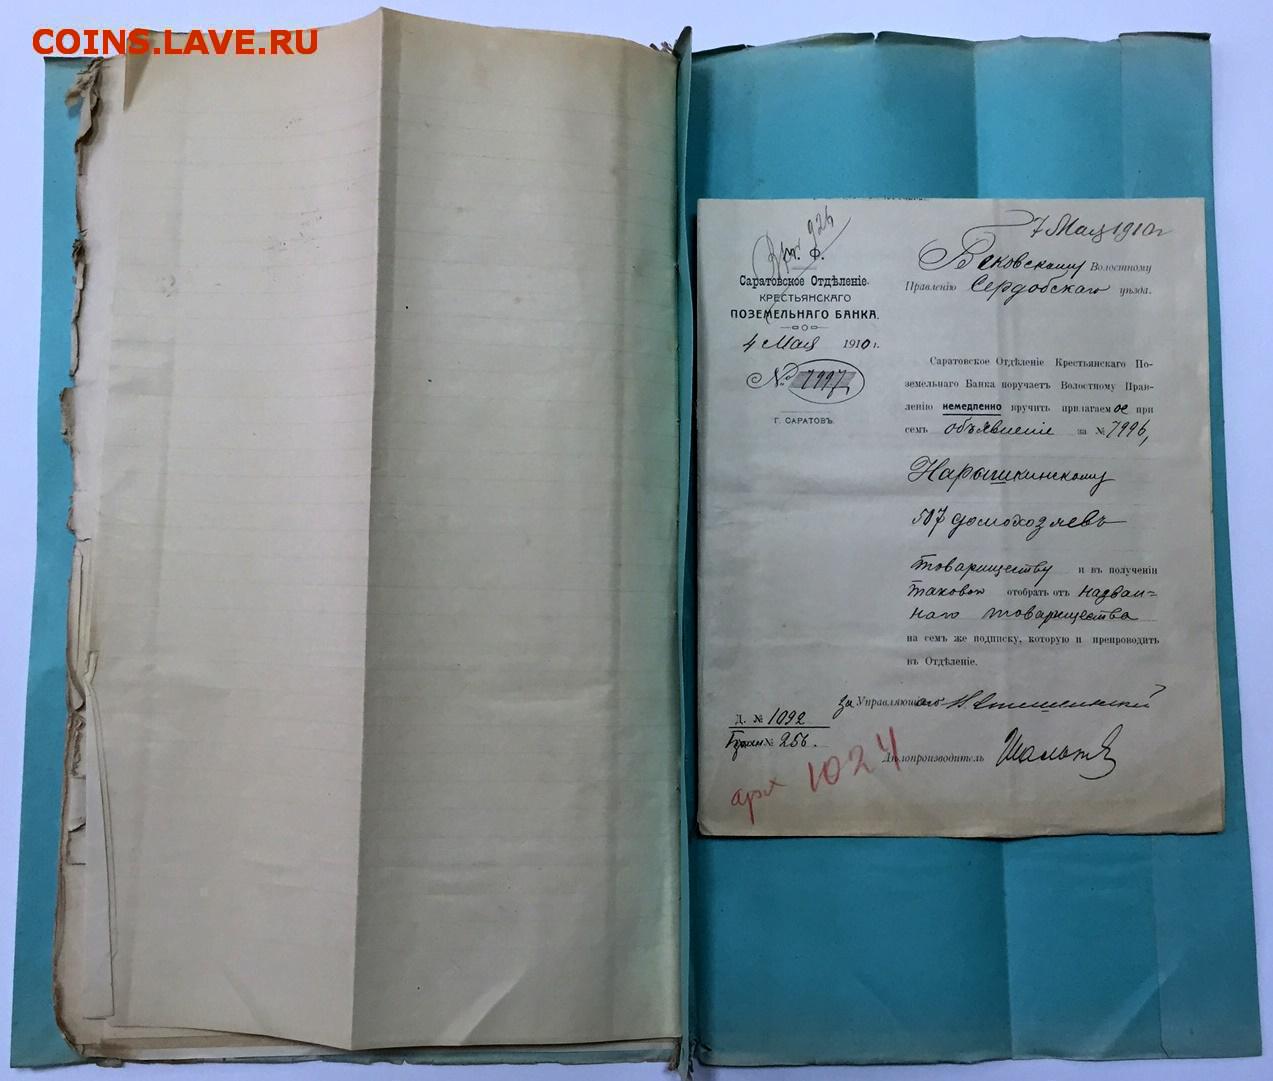 COINS.LAVE.RU
7 Мая 1910 г
926
М. Ф.
Саратовское Отдѣленіе
КРЕСТЬЯНСКАГО
ПОЗЕМЕЛЬНАГО БАНКА.
4 Мая 1910 г.
№ 7997
Г. САРАТОВЪ.
Бековскому Волостному
Правленію Сердобскаго уѣзда.
Саратовское Отдѣленіе Крестьянскаго По-
земельнаго Банка поручаетъ Волостному Прав-
ленію немедленно вручить прилагаемое при
семъ объявленіе за № 7996,
Нарышкинскому
507 домохозяевъ
товариществу и въ полученіи
таковой отобрать отъ назван-
наго товарищества
на семъ же подписку, которую и препроводить
въ Отдѣленіе.
За Управляющаго
Д. № 1092
№ 256.
Дѣлопроизводитель
арх 1024